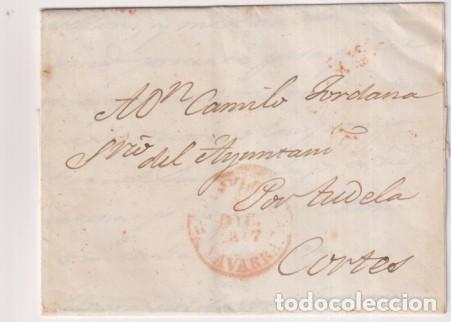 A Dn Camilo Jordana
Srio del Ayuntam
Por Tudela
Cortes
DIC.
NAVARRA
todocoleccion.net